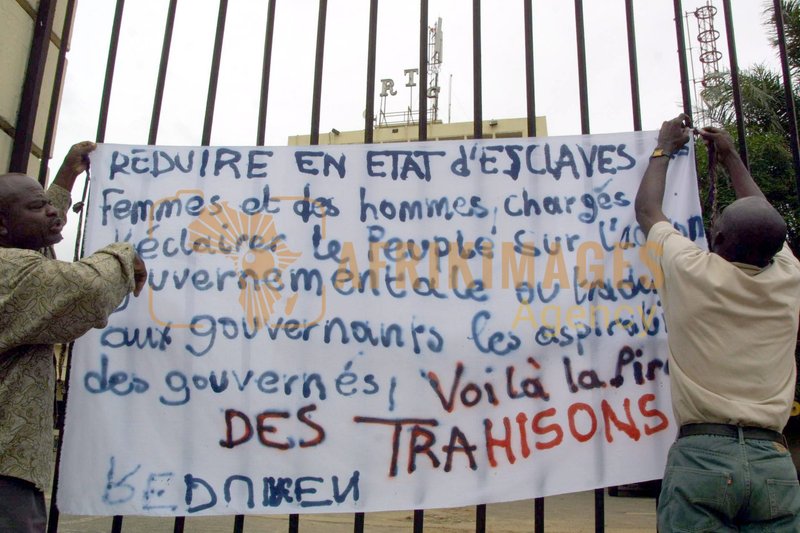 RTG
RÉDUIRE EN ETAT d'ESCLAVES
femmes et des hommes, chargés
d'éclairer le Peuple sur l'action
gouvernementale ou traduire
aux gouvernants les
des gouvernés, Voilà la
DES TRAHISONS
AFRIKIMAGES
Agency